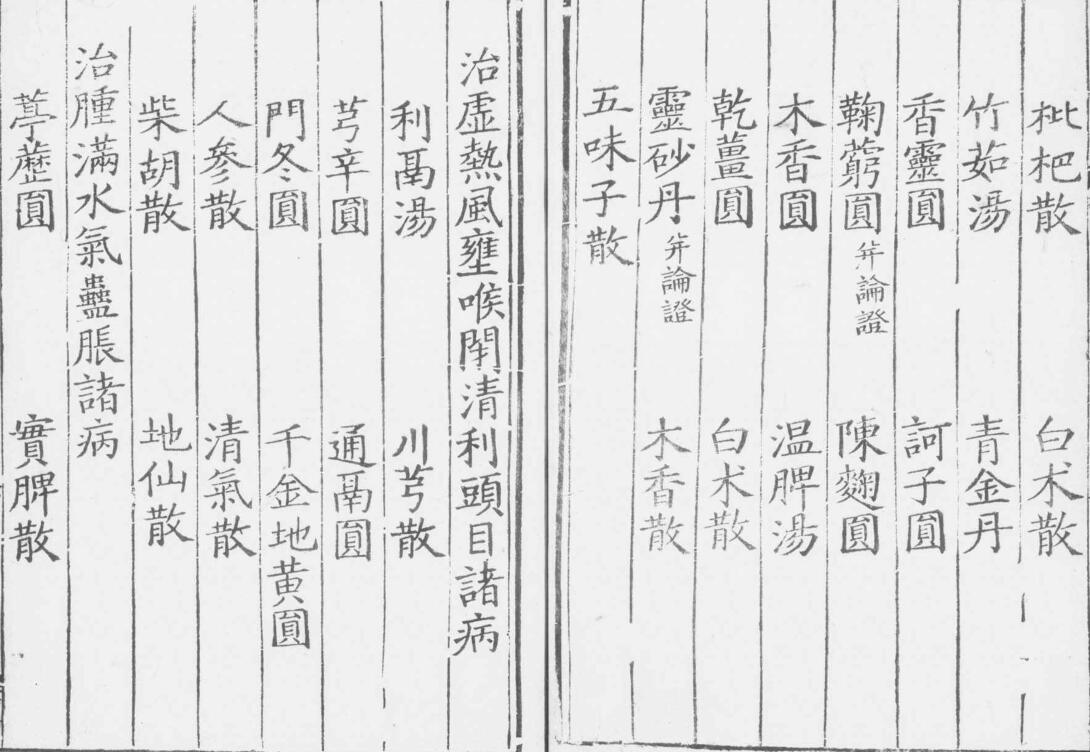 枇杷散　白术散
竹茹湯　青金丹
香靈圓　訶子圓
鞠藭圓并論證　陳麴圓
木香圓　温脾湯
乾薑圓　白术散
靈砂丹并論證　木香散
五味子散
治虚熱風壅喉閉清利頭目諸病
利鬲湯　川芎散
芎辛圓　通鬲圓
門冬圓　千金地黄圓
人參散　清氣散
柴胡散　地仙散
治腫滿水氣蠱脹諸病
葶藶圓　實脾散